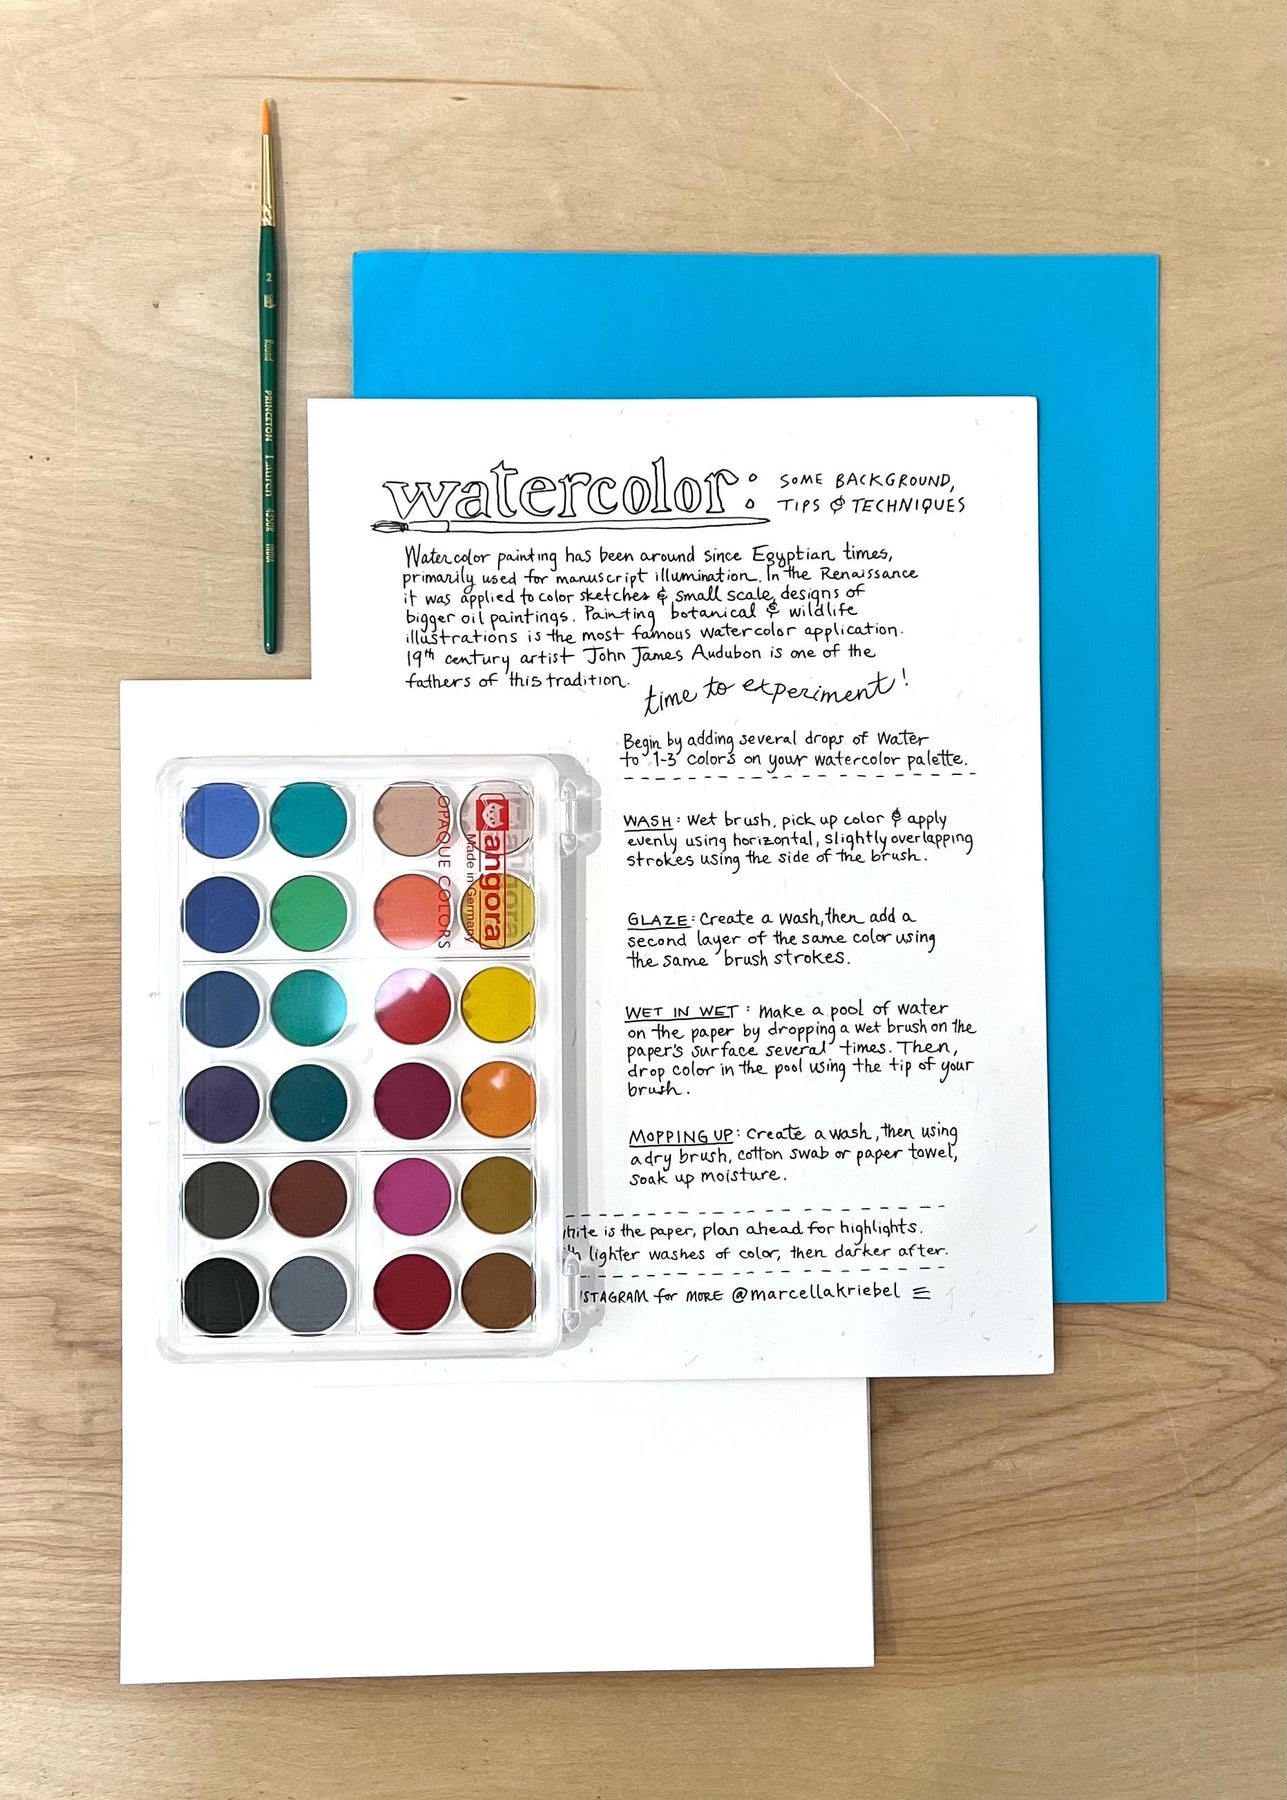 2
Round
PRINCETON
Lauren
4350R
INDIA
watercolor:
SOME BACKGROUND,
TIPS & TECHNIQUES
Watercolor painting has been around since Egyptian times,
primarily used for manuscript illumination. In the Renaissance
it was applied to color sketches & small scale designs of
bigger oil paintings. Painting botanical & wildlife
illustrations is the most famous watercolor application.
19th century artist John James Audubon is one of the
fathers of this tradition.
time to experiment!
Begin by adding several drops of water
to 1-3 colors on your watercolor palette.
WASH: Wet brush, pick up color & apply
evenly using horizontal, slightly overlapping
strokes using the side of the brush.
GLAZE: Create a wash, then add a
second layer of the same color using
the same brush strokes.
WET IN WET: Make a pool of water
on the paper by dropping a wet brush on the
paper's surface several times. Then,
drop color in the pool using the tip of your
brush.
MOPPING UP: Create a wash, then using
a dry brush, cotton swab or paper towel,
soak up moisture.
is the paper, plan ahead for highlights.
lighter washes of color, then darker after.
for MORE @marcellakriebel
angora
Made in Germany
OPAQUE COLORS